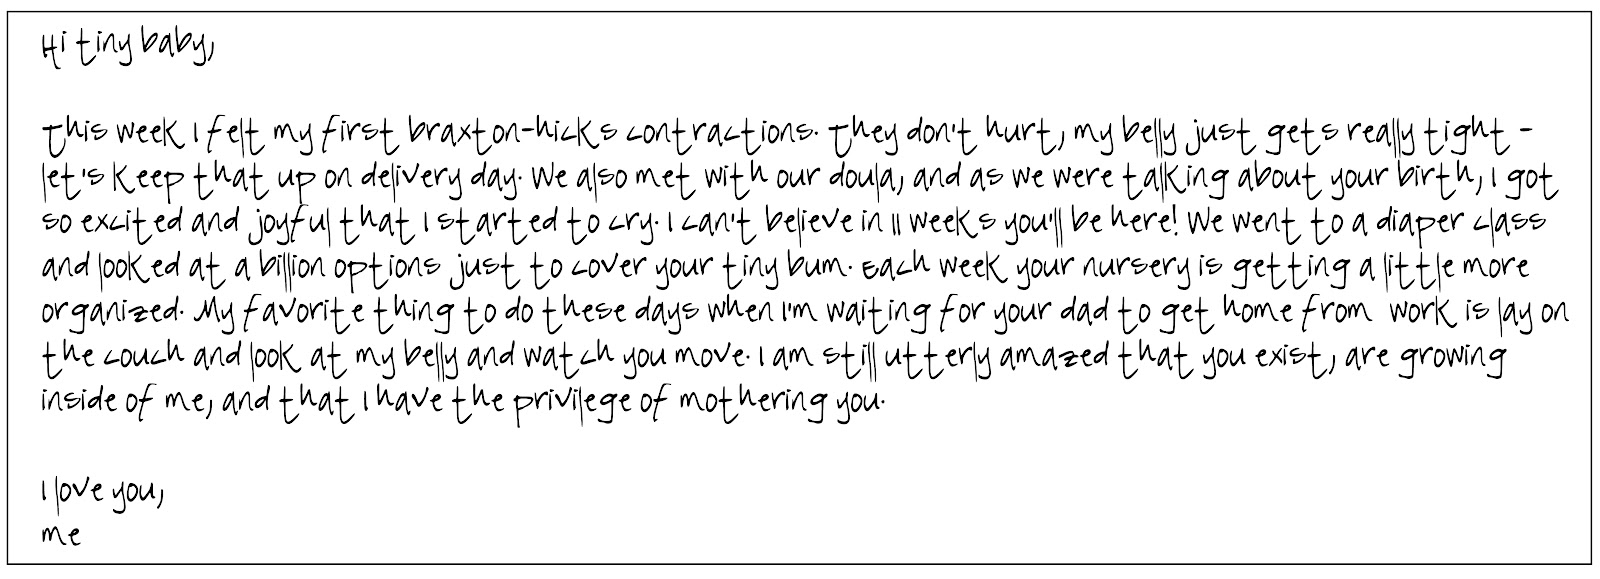 Hi tiny baby,
This week I felt my first braxton-hicks contractions. They don't hurt, my belly just gets really tight -
let's keep that up on delivery day. We also met with our doula, and as we were talking about your birth, I got
so excited and joyful that I started to cry. I can't believe in 11 weeks you'll be here! We went to a diaper class
and looked at a billion options just to cover your tiny bum. Each week your nursery is getting a little more
organized. My favorite thing to do these days when I'm waiting for your dad to get home from work is lay on
the couch and look at my belly and watch you move. I am still utterly amazed that you exist, are growing
inside of me, and that I have the privilege of mothering you.
I love you,
me